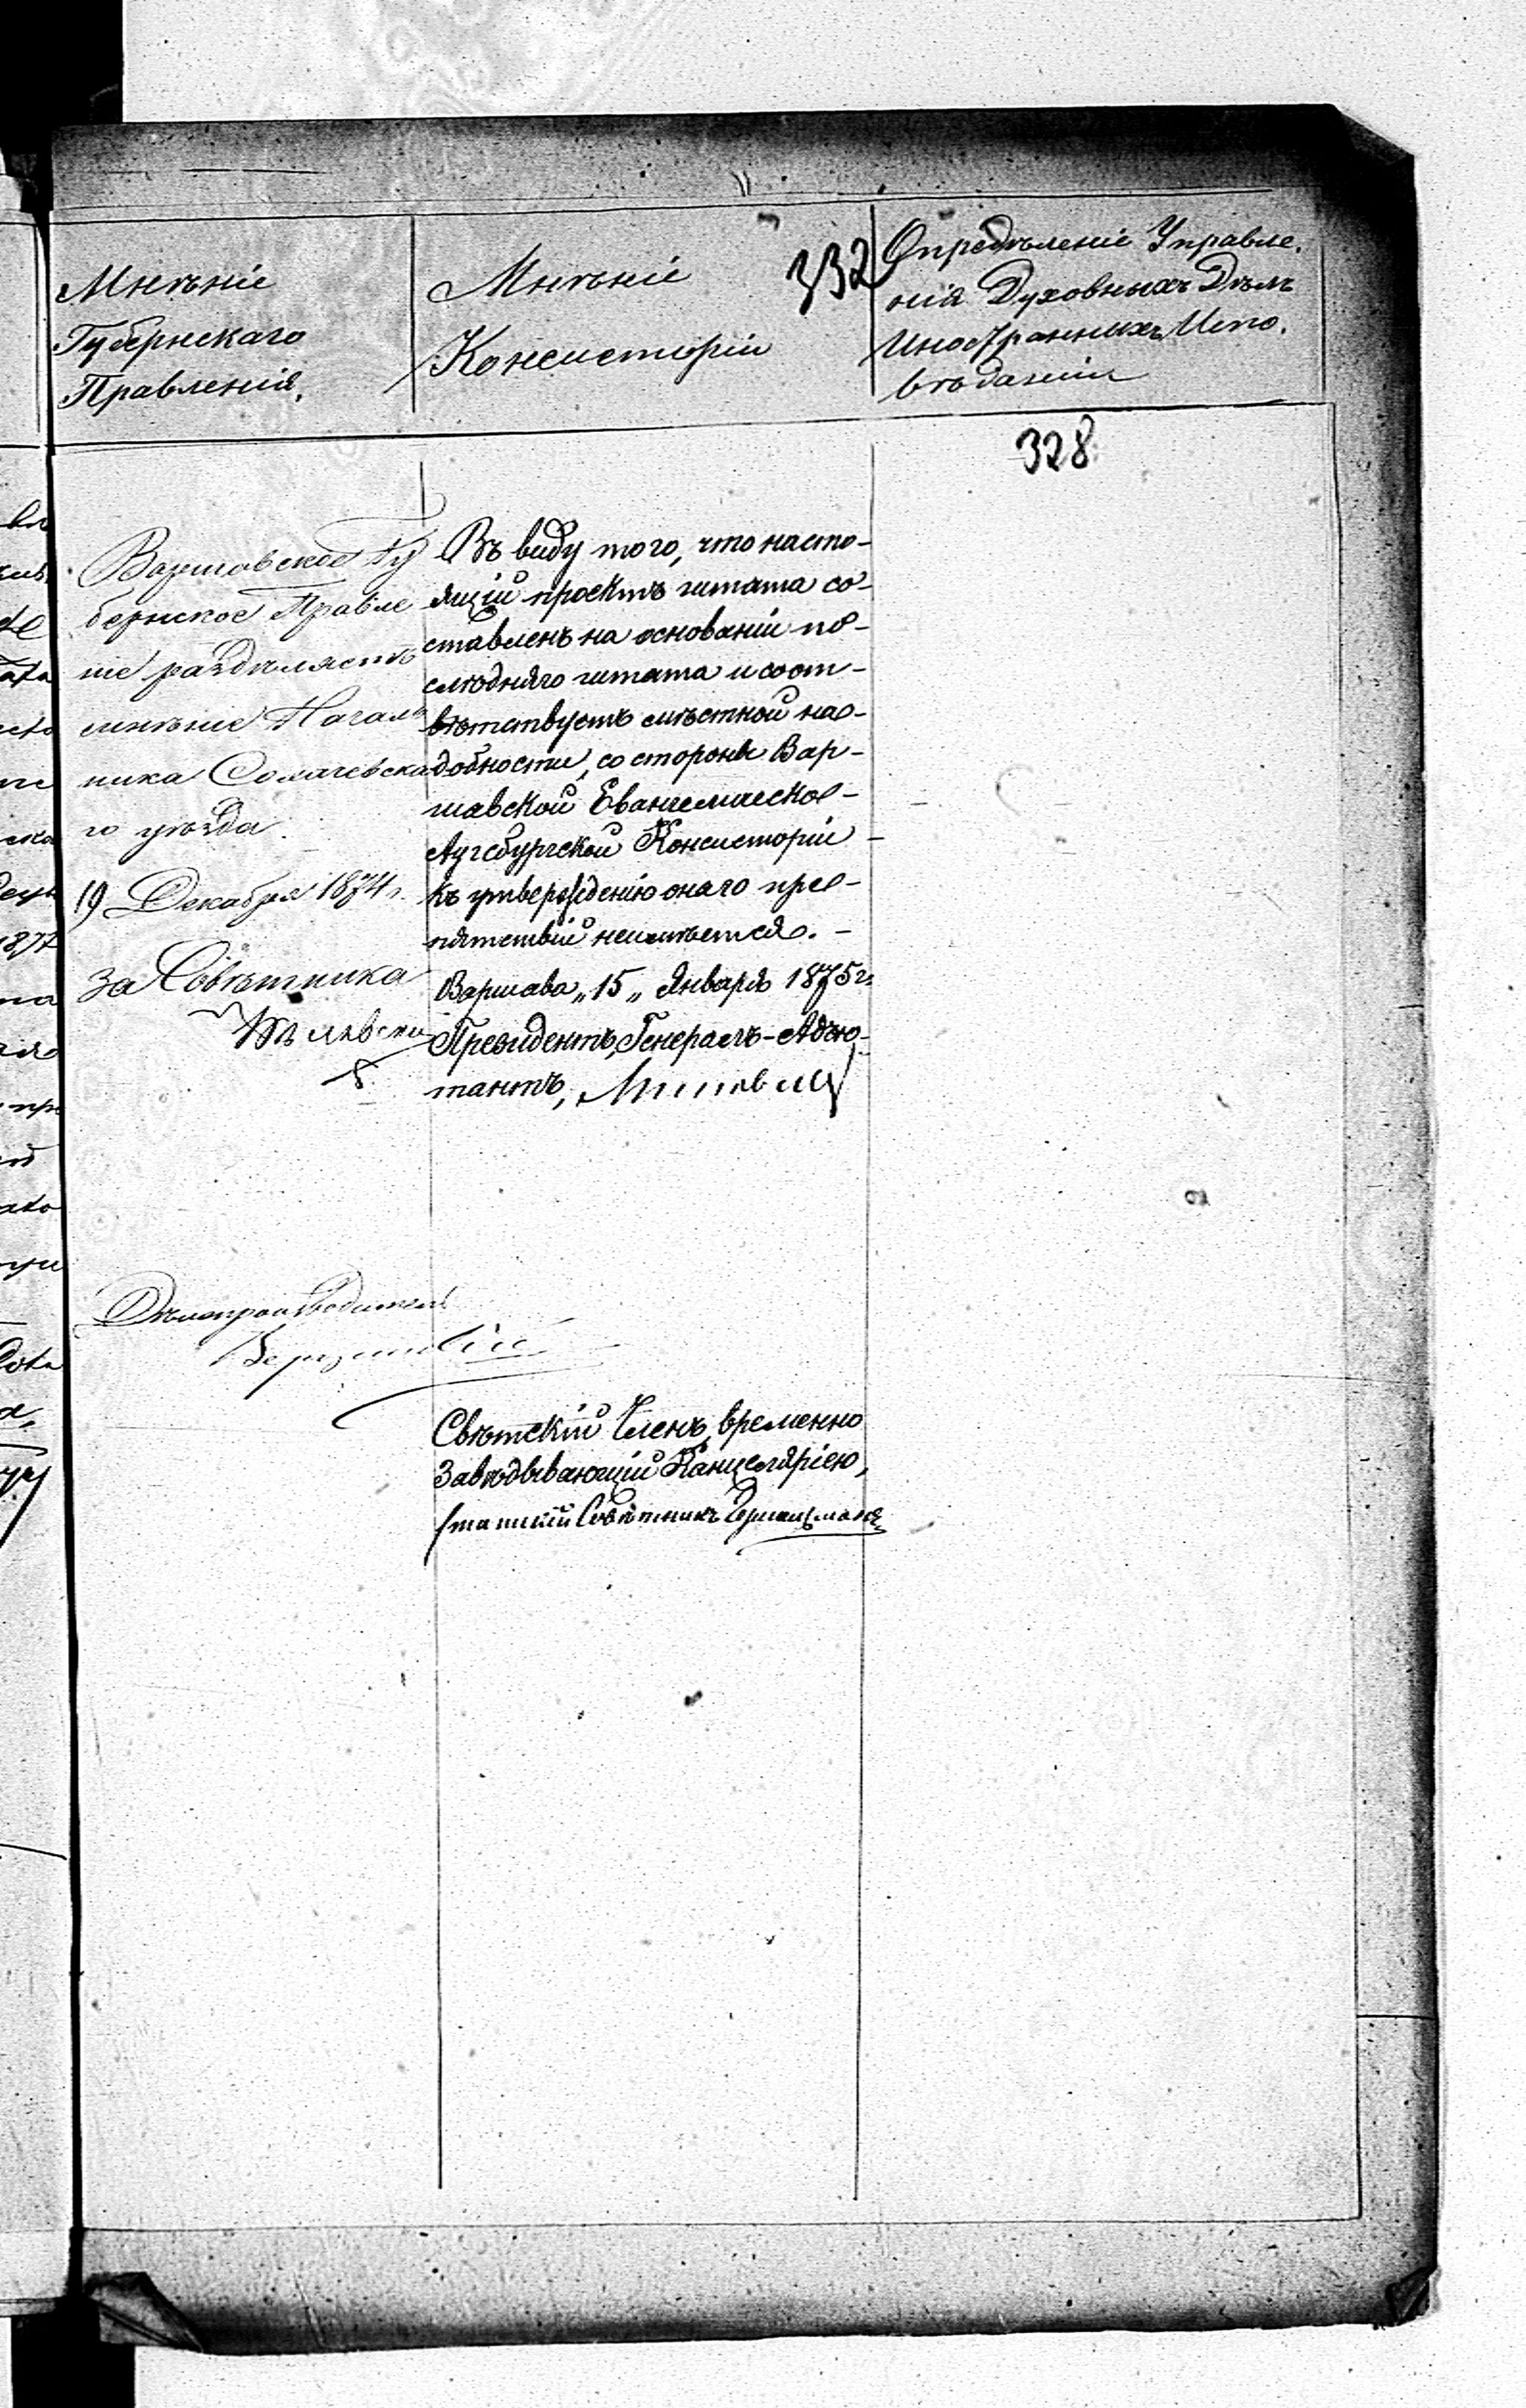 Мнѣніе
Губернскаго
Правленія.
Мнѣніе
Консисторіи
332
Опредѣленіе Управле-
нія Духовныхъ Дѣлъ
Иностранныхъ Испо-
вѣданій
328
Варшавское Гу
бернское Правле
ніе раздѣляетъ
мнѣніе Началь
ника Сохачевска
го уѣзда.
19 Декабря 1874 г.
За Совѣтника
Дѣлопроизводитель
Въ виду того, что насто-
ящій проектъ штата со-
ставленъ на основаніи по-
слѣдняго штата и соот-
вѣтствуетъ мѣстной на-
добности, со стороны Вар-
шавской Евангелическо-
Аугсбургской Консисторіи
къ утвержденію онаго пре-
пятствій неимѣется. -
Варшава „15„ Января 1875 г.
Президентъ, Генералъ-Адъю-
тантъ,
Свѣтскій Членъ, временно
Завѣдывающій Канцеляріею,
Статскій Совѣтникъ